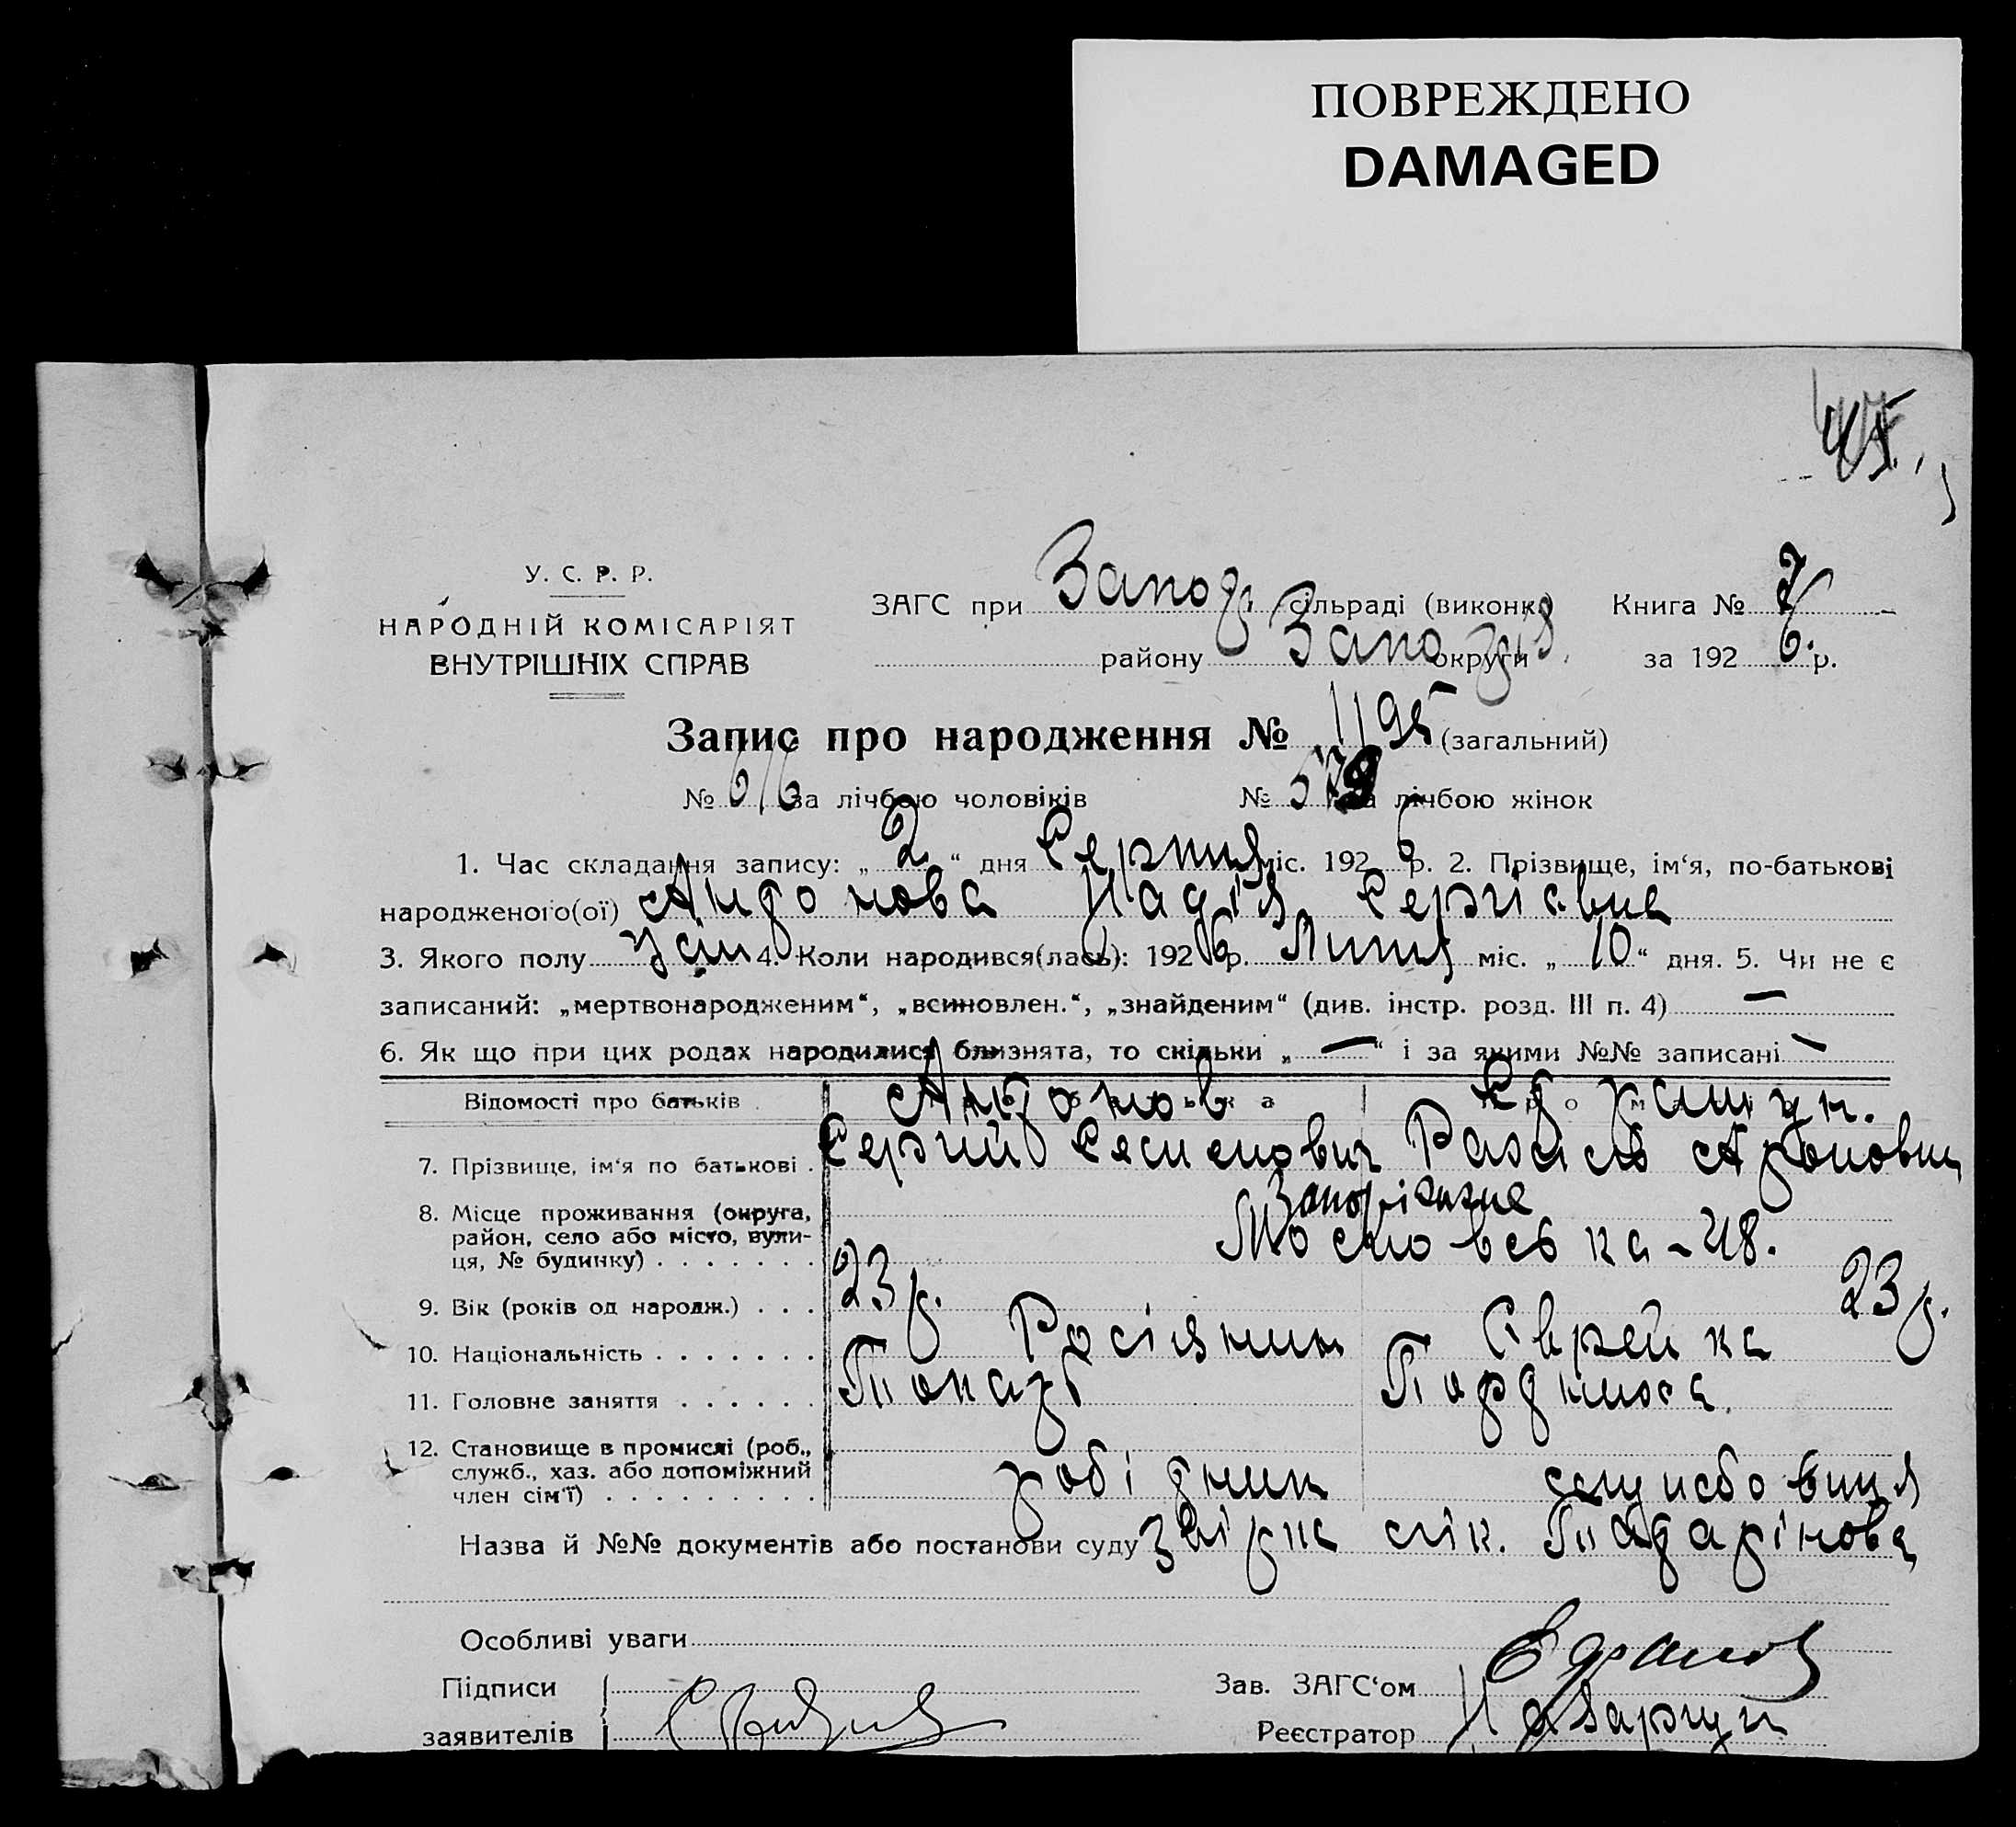 ПОВРЕЖДЕНО
DAMAGED
У. С. Р. Р.
НАРОДНІЙ КОМІСАРІЯТ
ВНУТРІШНІХ СПРАВ
ЗАГС при Запор. сільраді (виконк)
району Запоріз. округи
Книга № 7
за 1926 р.
Запис про народження № 1195 (загальний)
№ 616 за лічбою чоловіків № 579 за лічбою жінок
1. Час складання запису: „2“ дня Серпня міс. 1926 р. 2. Прізвище, ім‘я, по-батькові
народженого(ої) Антонова Надія Сергієвна
3. Якого полу жін 4. Коли народився(лась): 1926 р. Липня міс. „10“ дня. 5. Чи не є
записаний: „мертвонародженим“, „всиновлен.“, „знайденим“ (див. інстр. розд. III п. 4) —
6. Як що при цих родах народилися близнята, то скільки „—“ і за якими №№ записані —
Відомості про батьків
Антонов
7. Прізвище, ім‘я по батькові . Сергій Рахиль Ароновна
8. Місце проживання (округа,
район, село або місто, вули-
ця, № будинку) . . . . . . . Запоріжжя
Московська - 48.
9. Вік (років од народж.) . . . 23 р. 23 р.
10. Національність . . . . . . . Росіянин Єврейка
11. Головне заняття . . . . . . Токарь
12. Становище в промислі (роб.,
служб., хаз. або допоміжний
член сім‘ї) . . . . . . . . . робітник службовиця
Назва й №№ документів або постанови суду
Особливі уваги
Підписи
заявителів
Зав. ЗАГС‘ом
Реєстратор